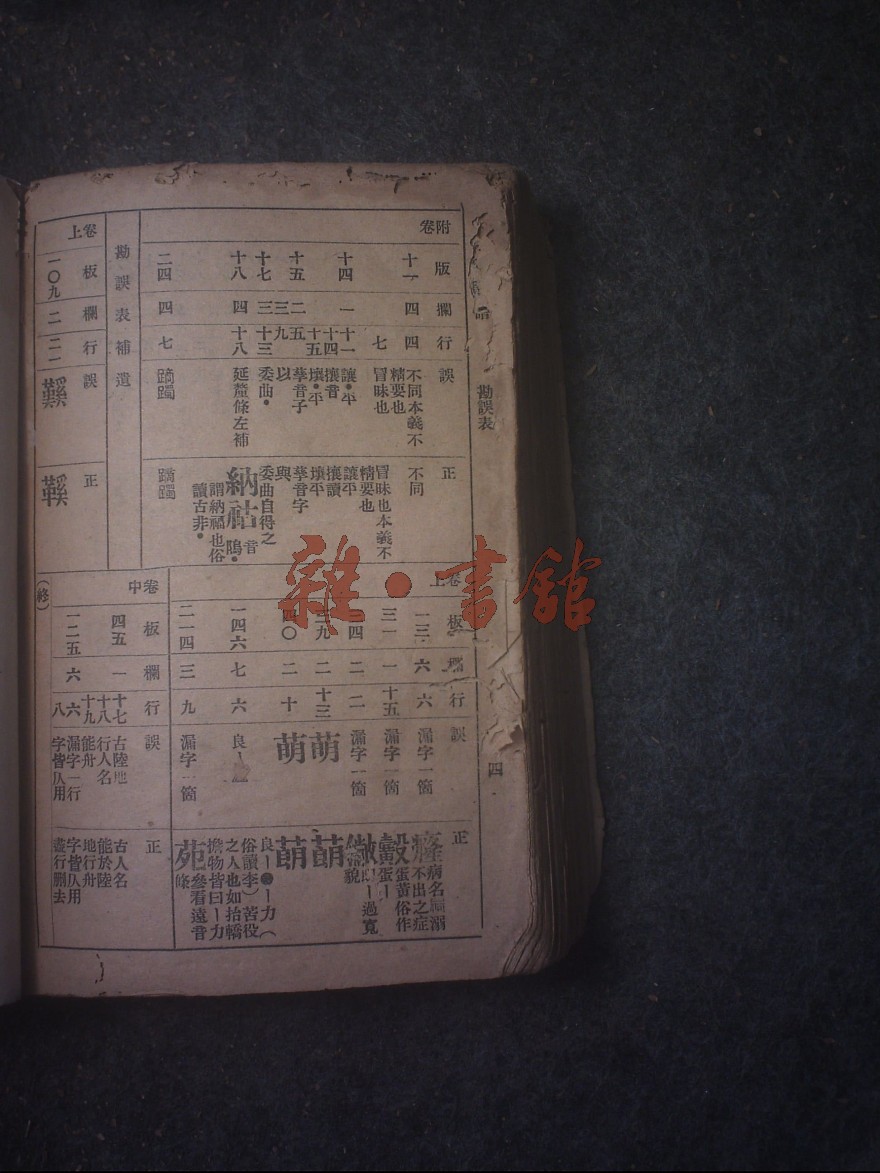 勘誤表
四
附卷
版 欄 行 誤 正
十一 四 四 不同本義不 不同
七 精要也 冒昧也本義不
冒昧也 精要也
十四 一 十一 讓•平 讓平
十四 攘音 攘讀
十五 壤•平 壤平
十五 二 五 摹音子 摹音字
三 九 以 與
十七 三 十三 委曲• 委曲自得之
十八 四 十八 延釐條左補 納祜 音䧍•
謂納福也俗
讀古非•
二四 四 七
勘誤表補遺
卷上
板 欄 行 誤 正
一〇九 二 二一
卷上
板 欄 行 誤 正
一三 六 六 漏字一箇
病名
不出之症
三一 一 十五 漏字一箇
蛋黃俗作
蛋
四 二 二 漏字一箇
過寬
貌
九 二 十三 萌
四〇 二 十 萌
一四六 七 六 良 良ー●ー力(
俗讀李)苦役
之人也如抬轎
擔物皆曰ー力
二一四 三 九 漏字一箇 苑 條參看遠音
卷中
板 欄 行 誤 正
四五 一 十七 古陸地 古人名
十八 行人名 能於陸
十九 能舟 地行舟
一二五 六 六 漏字一行 字皆仄用
八 字皆仄用 盡行刪去
(終)
雜•書館